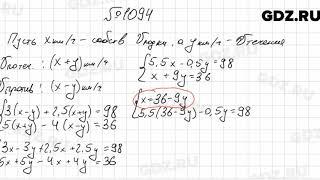 GDZ.RU
№1094
Пусть x км/ч – собств лодки, а y км/ч – течения
по теч: (x+y) км/ч
против: (x-y) км/ч
{3(x-y)+2,5(x+y)=98
5(x+y)-4(x-y)=36
3x-3y+2,5x+2,5y=98
5x+5y-4x+4y=36
{5,5x-0,5y=98
x+9y=36
{x=36-9y
5,5(36-9y)-0,5y=98
GDZ.RU